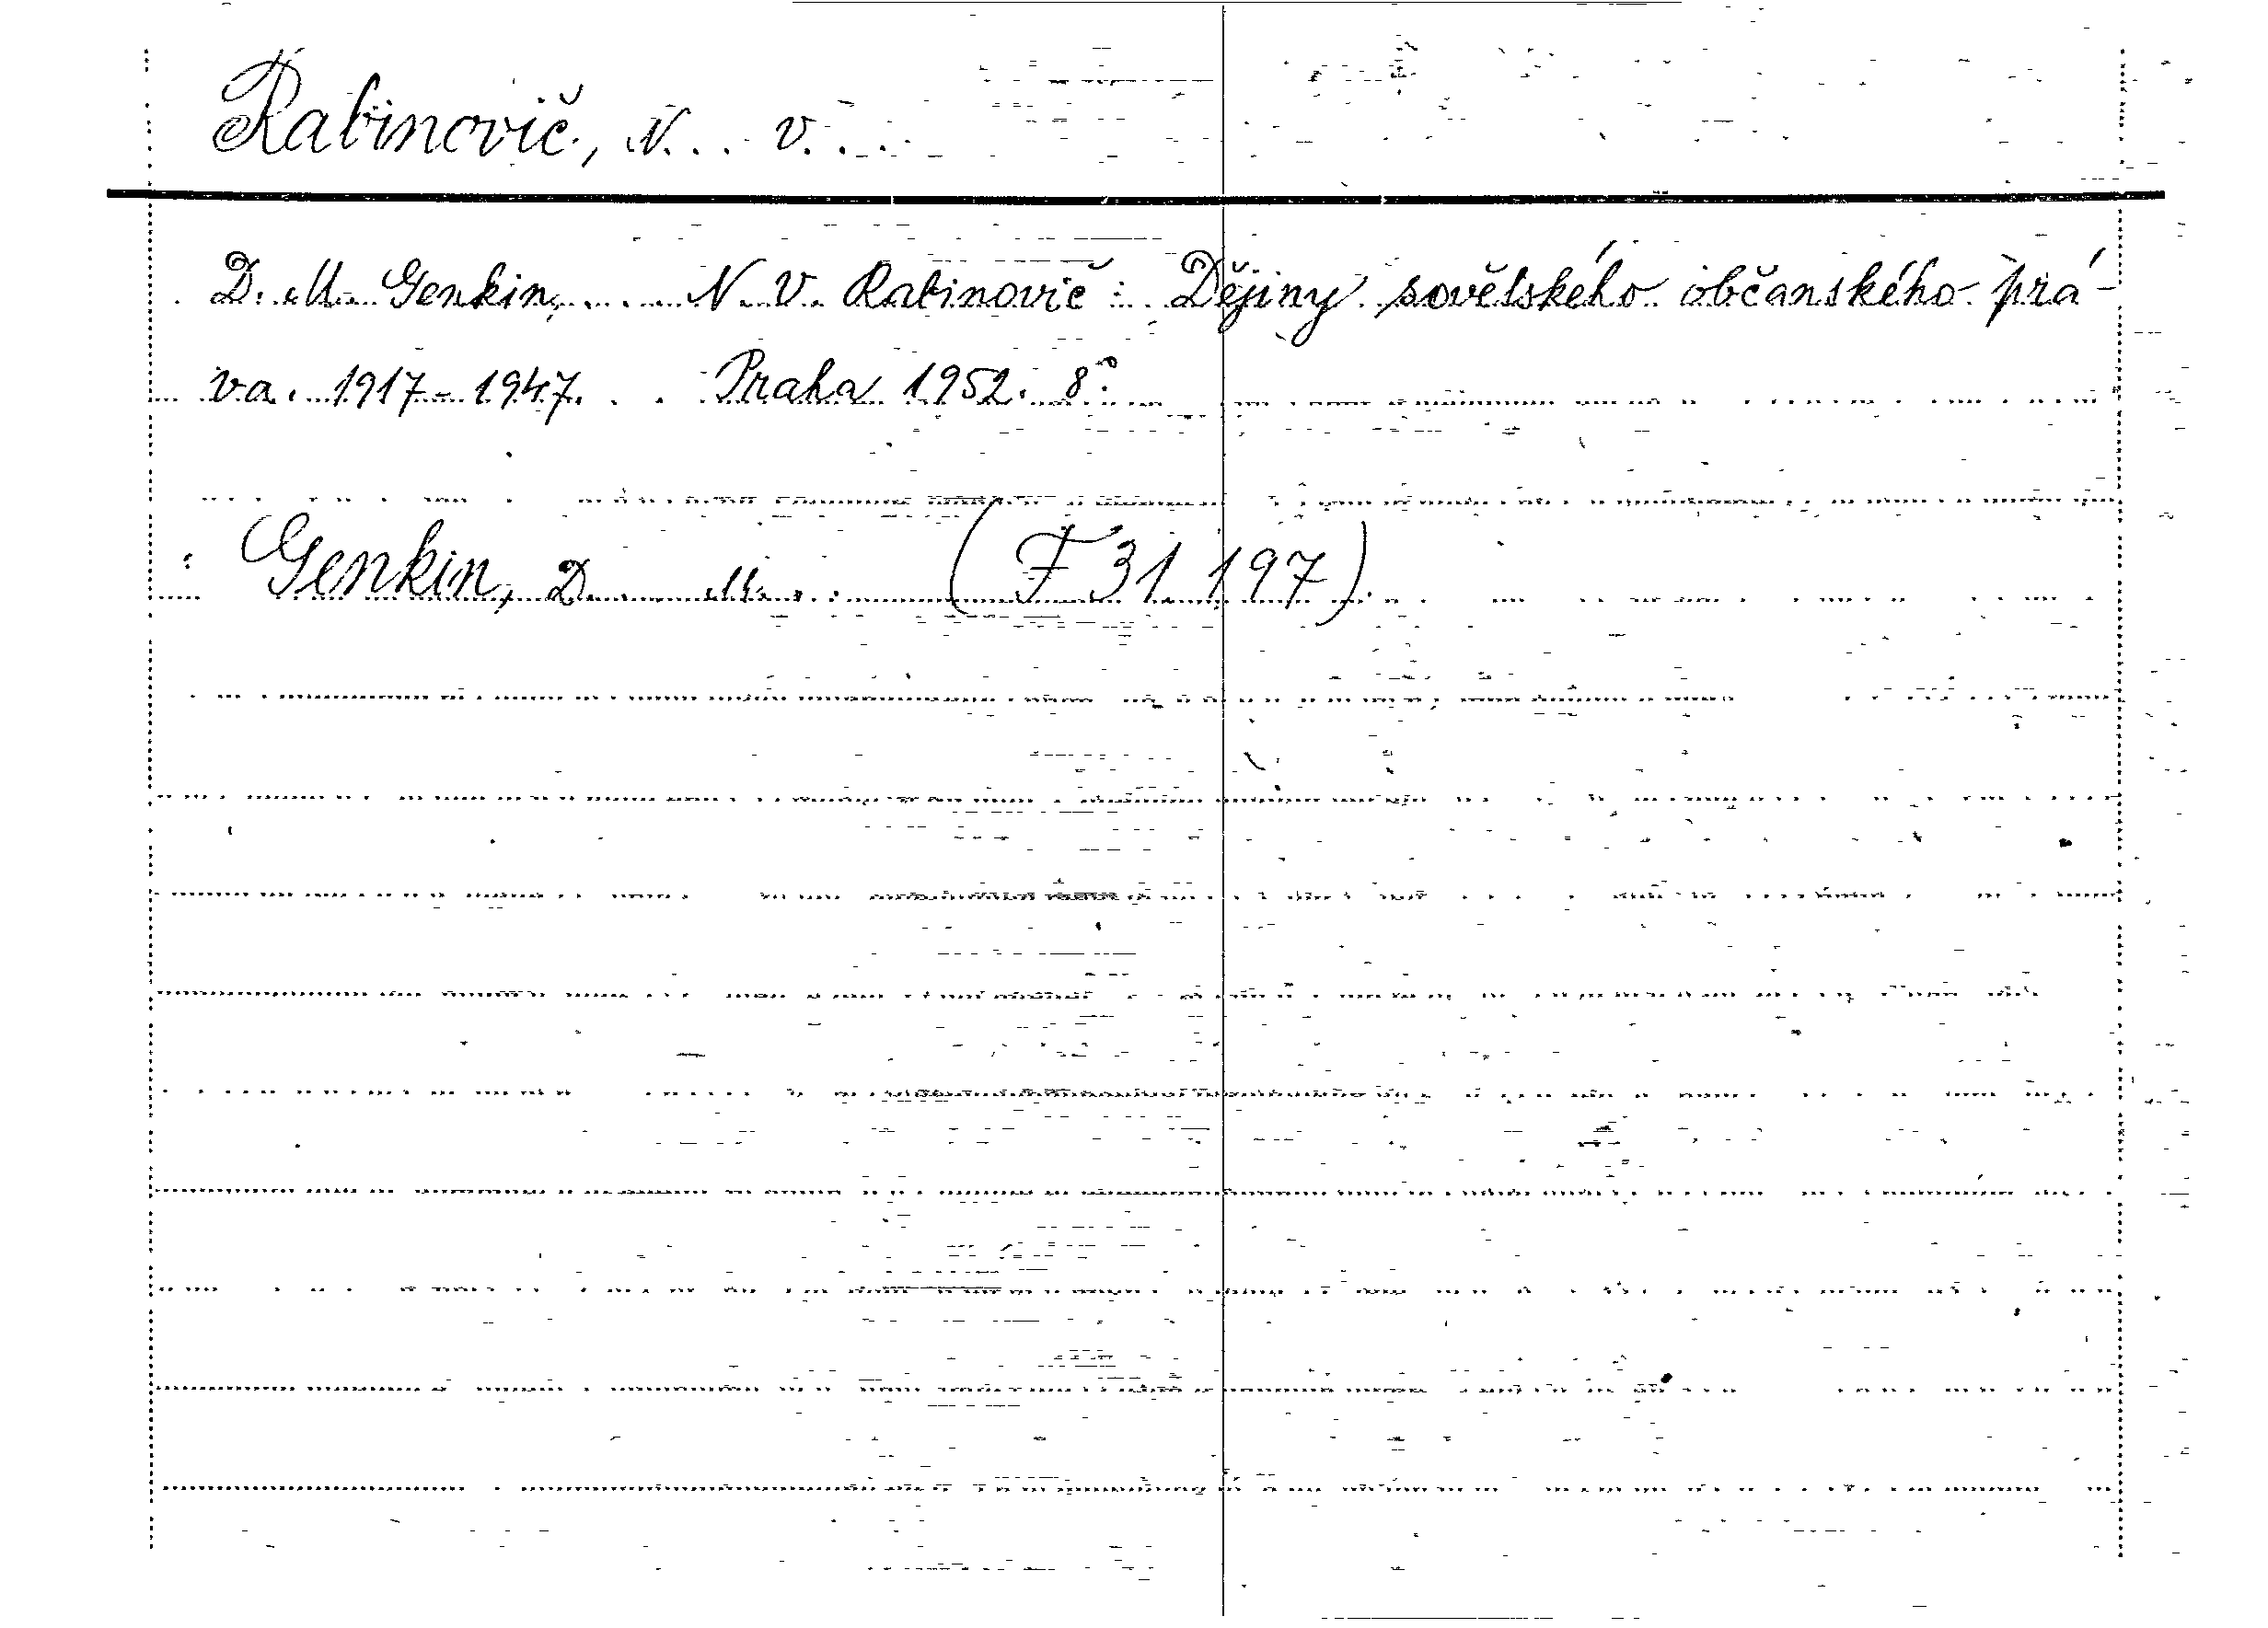 Rabinovič, N. V.
D. M. Genkin, N. V. Rabinovič: Dějiny sovětského občanského prá-
va. 1917-1947. Praha 1952. 8°.
Genkin, D. M. (F 31.197).